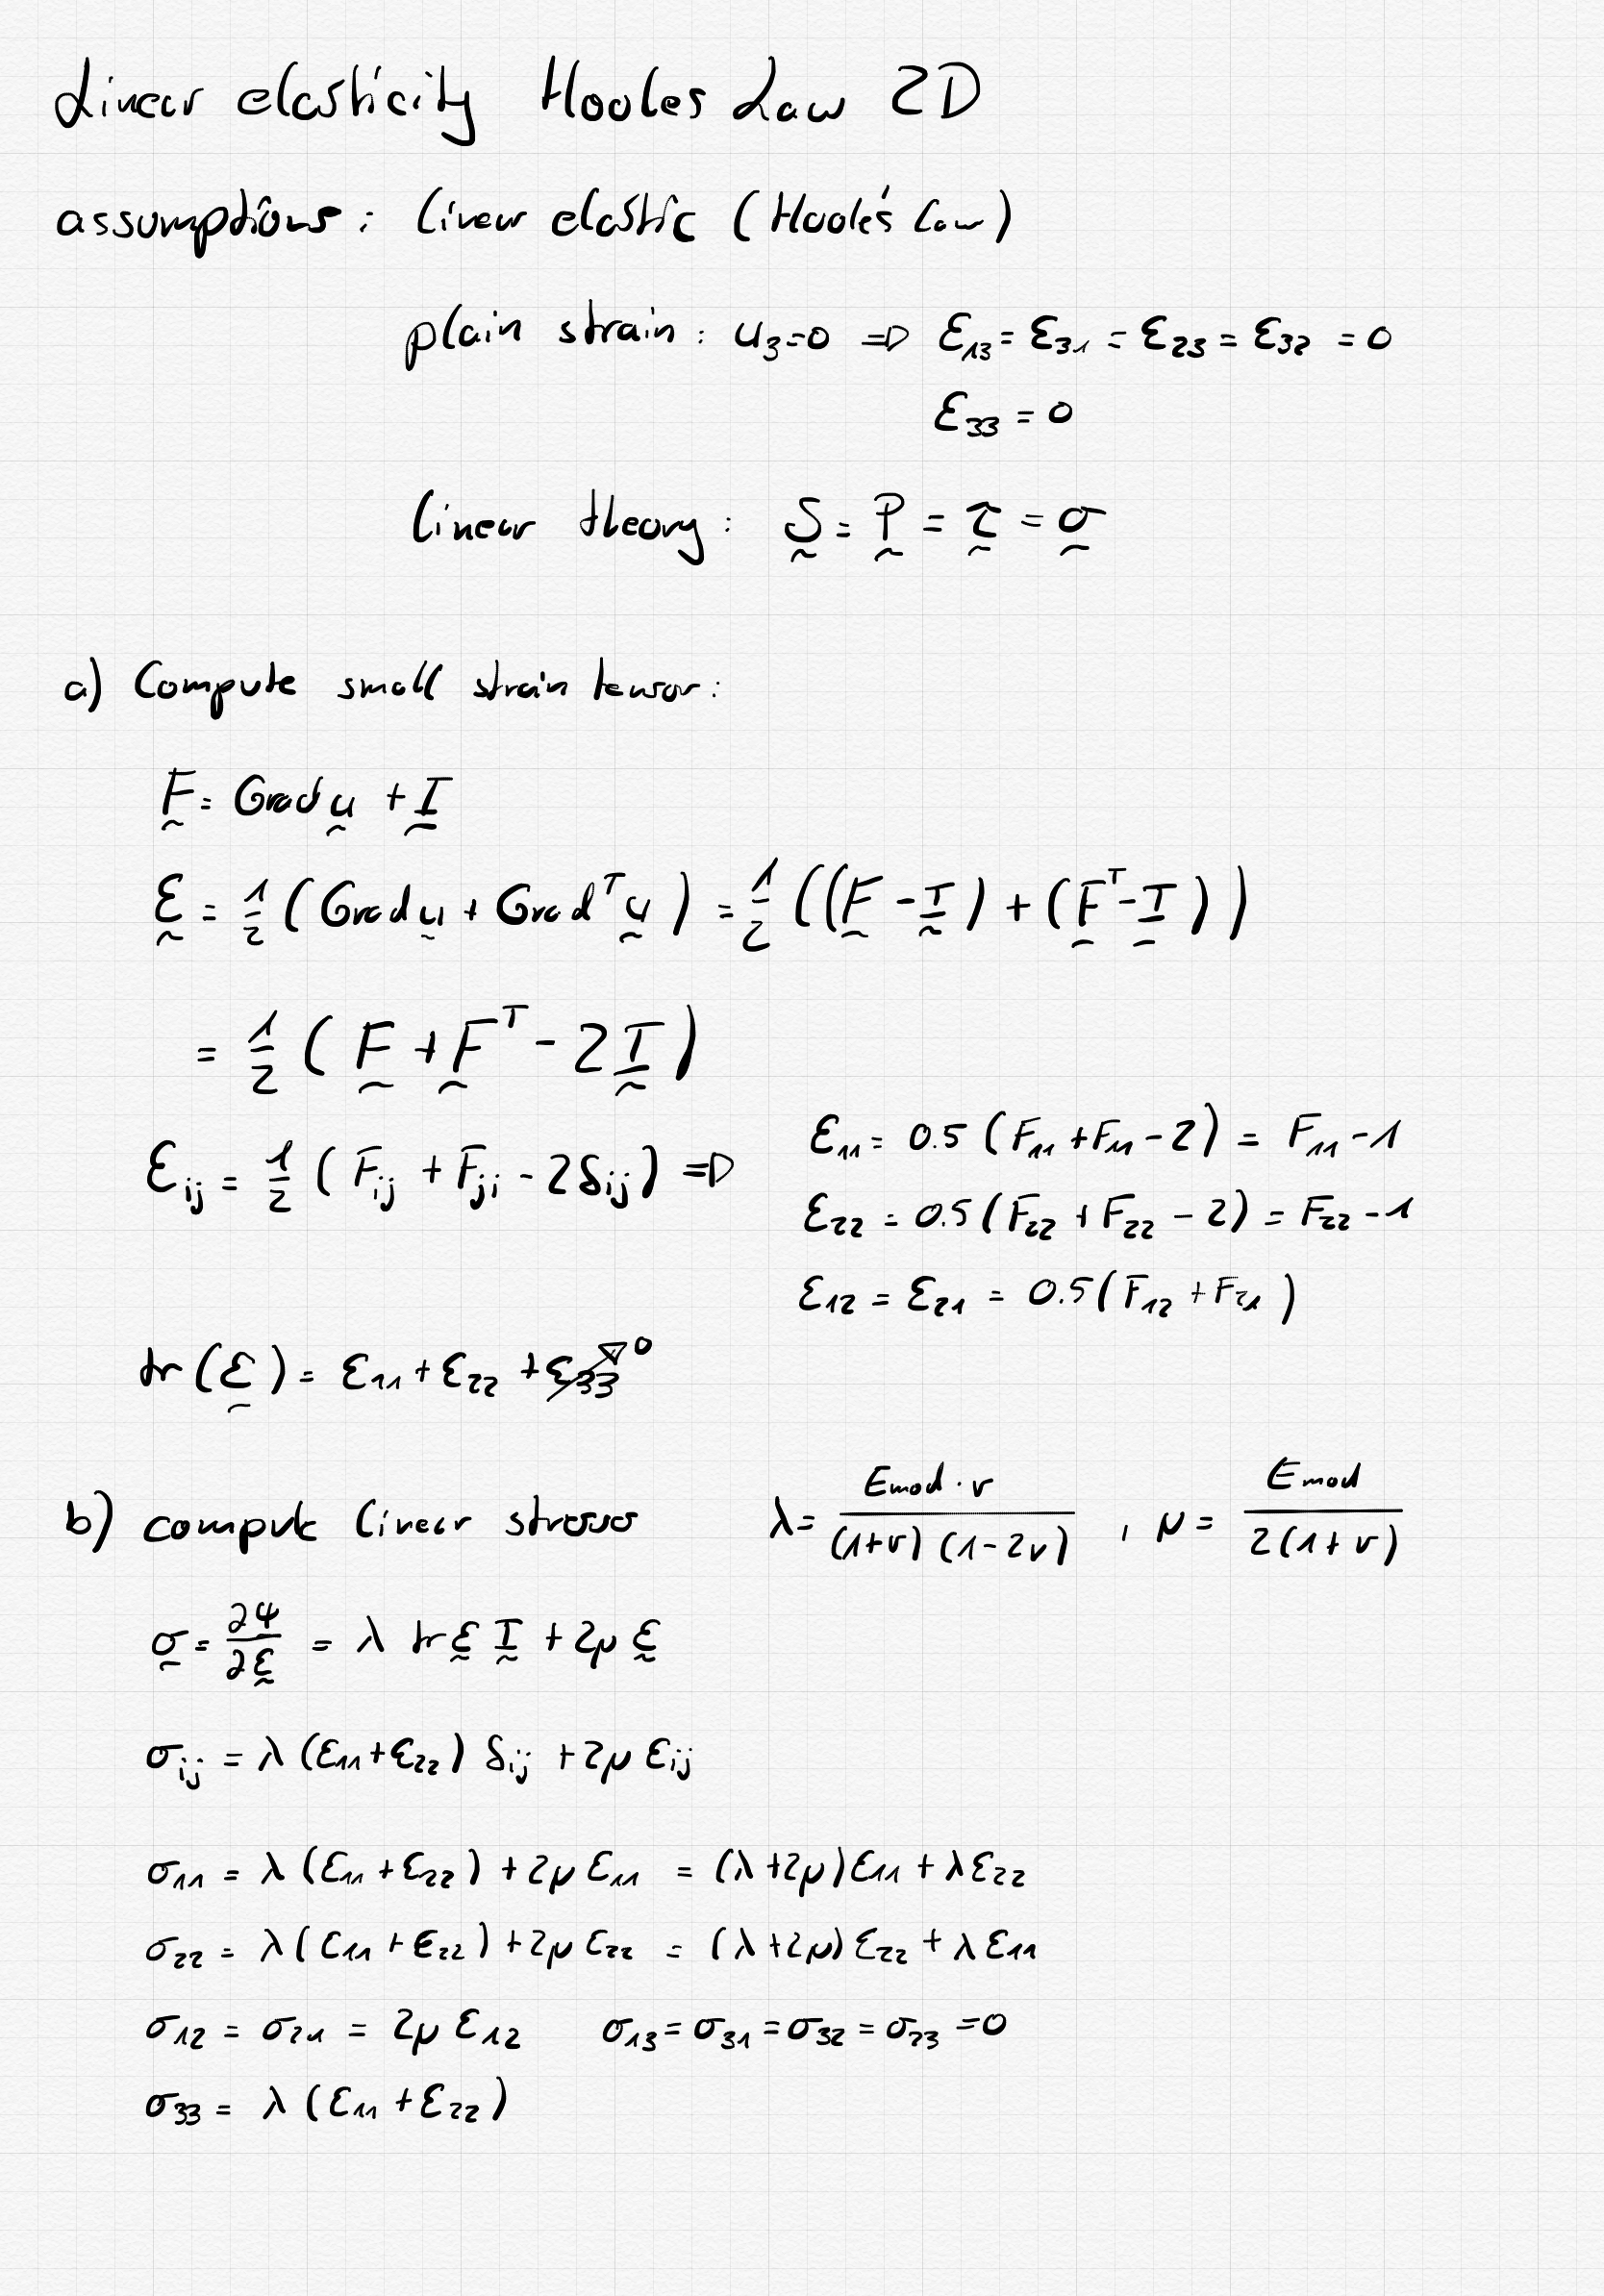 Linear elasticity Hookes Law 2D
assumptions: linear elastic (Hooke's Law)
plain strain: u₃=0 ⇒ ε₁₃ = ε₃₁ = ε₂₃ = ε₃₂ = 0
ε₃₃ = 0
linear theory: S = P = τ = σ
a) Compute small strain tensor:
F = Grad u + I
ε = 1/2 (Grad u + Gradᵀ u) = 1/2 ((F - I) + (Fᵀ - I))
= 1/2 (F + Fᵀ - 2I)
ε_ij = 1/2 (F_ij + F_ji - 2δ_ij) ⇒
ε₁₁ = 0.5 (F₁₁ + F₁₁ - 2) = F₁₁ - 1
ε₂₂ = 0.5 (F₂₂ + F₂₂ - 2) = F₂₂ - 1
ε₁₂ = ε₂₁ = 0.5 (F₁₂ + F₂₁)
tr(ε) = ε₁₁ + ε₂₂ + ε₃₃ 0
b) compute linear stresses λ = Emod · ν / (1+ν) (1-2ν) , μ = Emod / 2(1+ν)
σ = ∂Ψ/∂ε = λ tr ε I + 2μ ε
σ_ij = λ (ε₁₁ + ε₂₂) δ_ij + 2μ ε_ij
σ₁₁ = λ (ε₁₁ + ε₂₂) + 2μ ε₁₁ = (λ + 2μ) ε₁₁ + λ ε₂₂
σ₂₂ = λ (ε₁₁ + ε₂₂) + 2μ ε₂₂ = (λ + 2μ) ε₂₂ + λ ε₁₁
σ₁₂ = σ₂₁ = 2μ ε₁₂ σ₁₃ = σ₃₁ = σ₃₂ = σ₂₃ = 0
σ₃₃ = λ (ε₁₁ + ε₂₂)